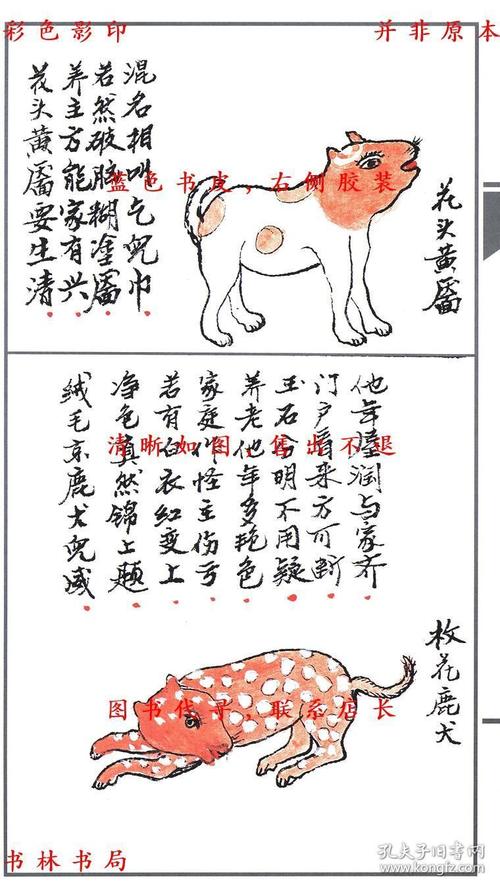 彩色影印
并非原本
花头黄靥
花头黄靥要生清
养主方能家有兴
若然破脸糊塗靥
混名相叫乞兒巾
蓝色书皮，右侧胶装
枚花鹿犬
绒毛京鹿犬兒威
净色真然锦上题
若有白衣红变上
家庭作怪主伤亏
养老他年多艳色
玉石分明不用疑
门户看来方可断
他年润与家齐
清晰如图，售出不退
图书代寻，联系店长
书林书局
孔夫子旧书网
www.kongfz.com